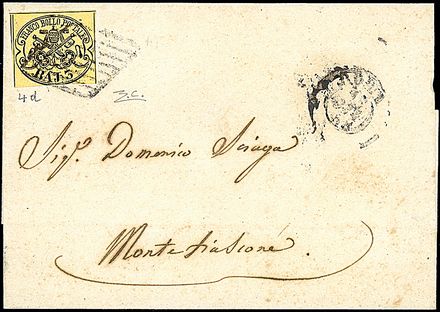 FRANCO BOLLO POSTALE
BAJ. 3
4d
Z.C.
Sigr. Domenico
Montefiascone